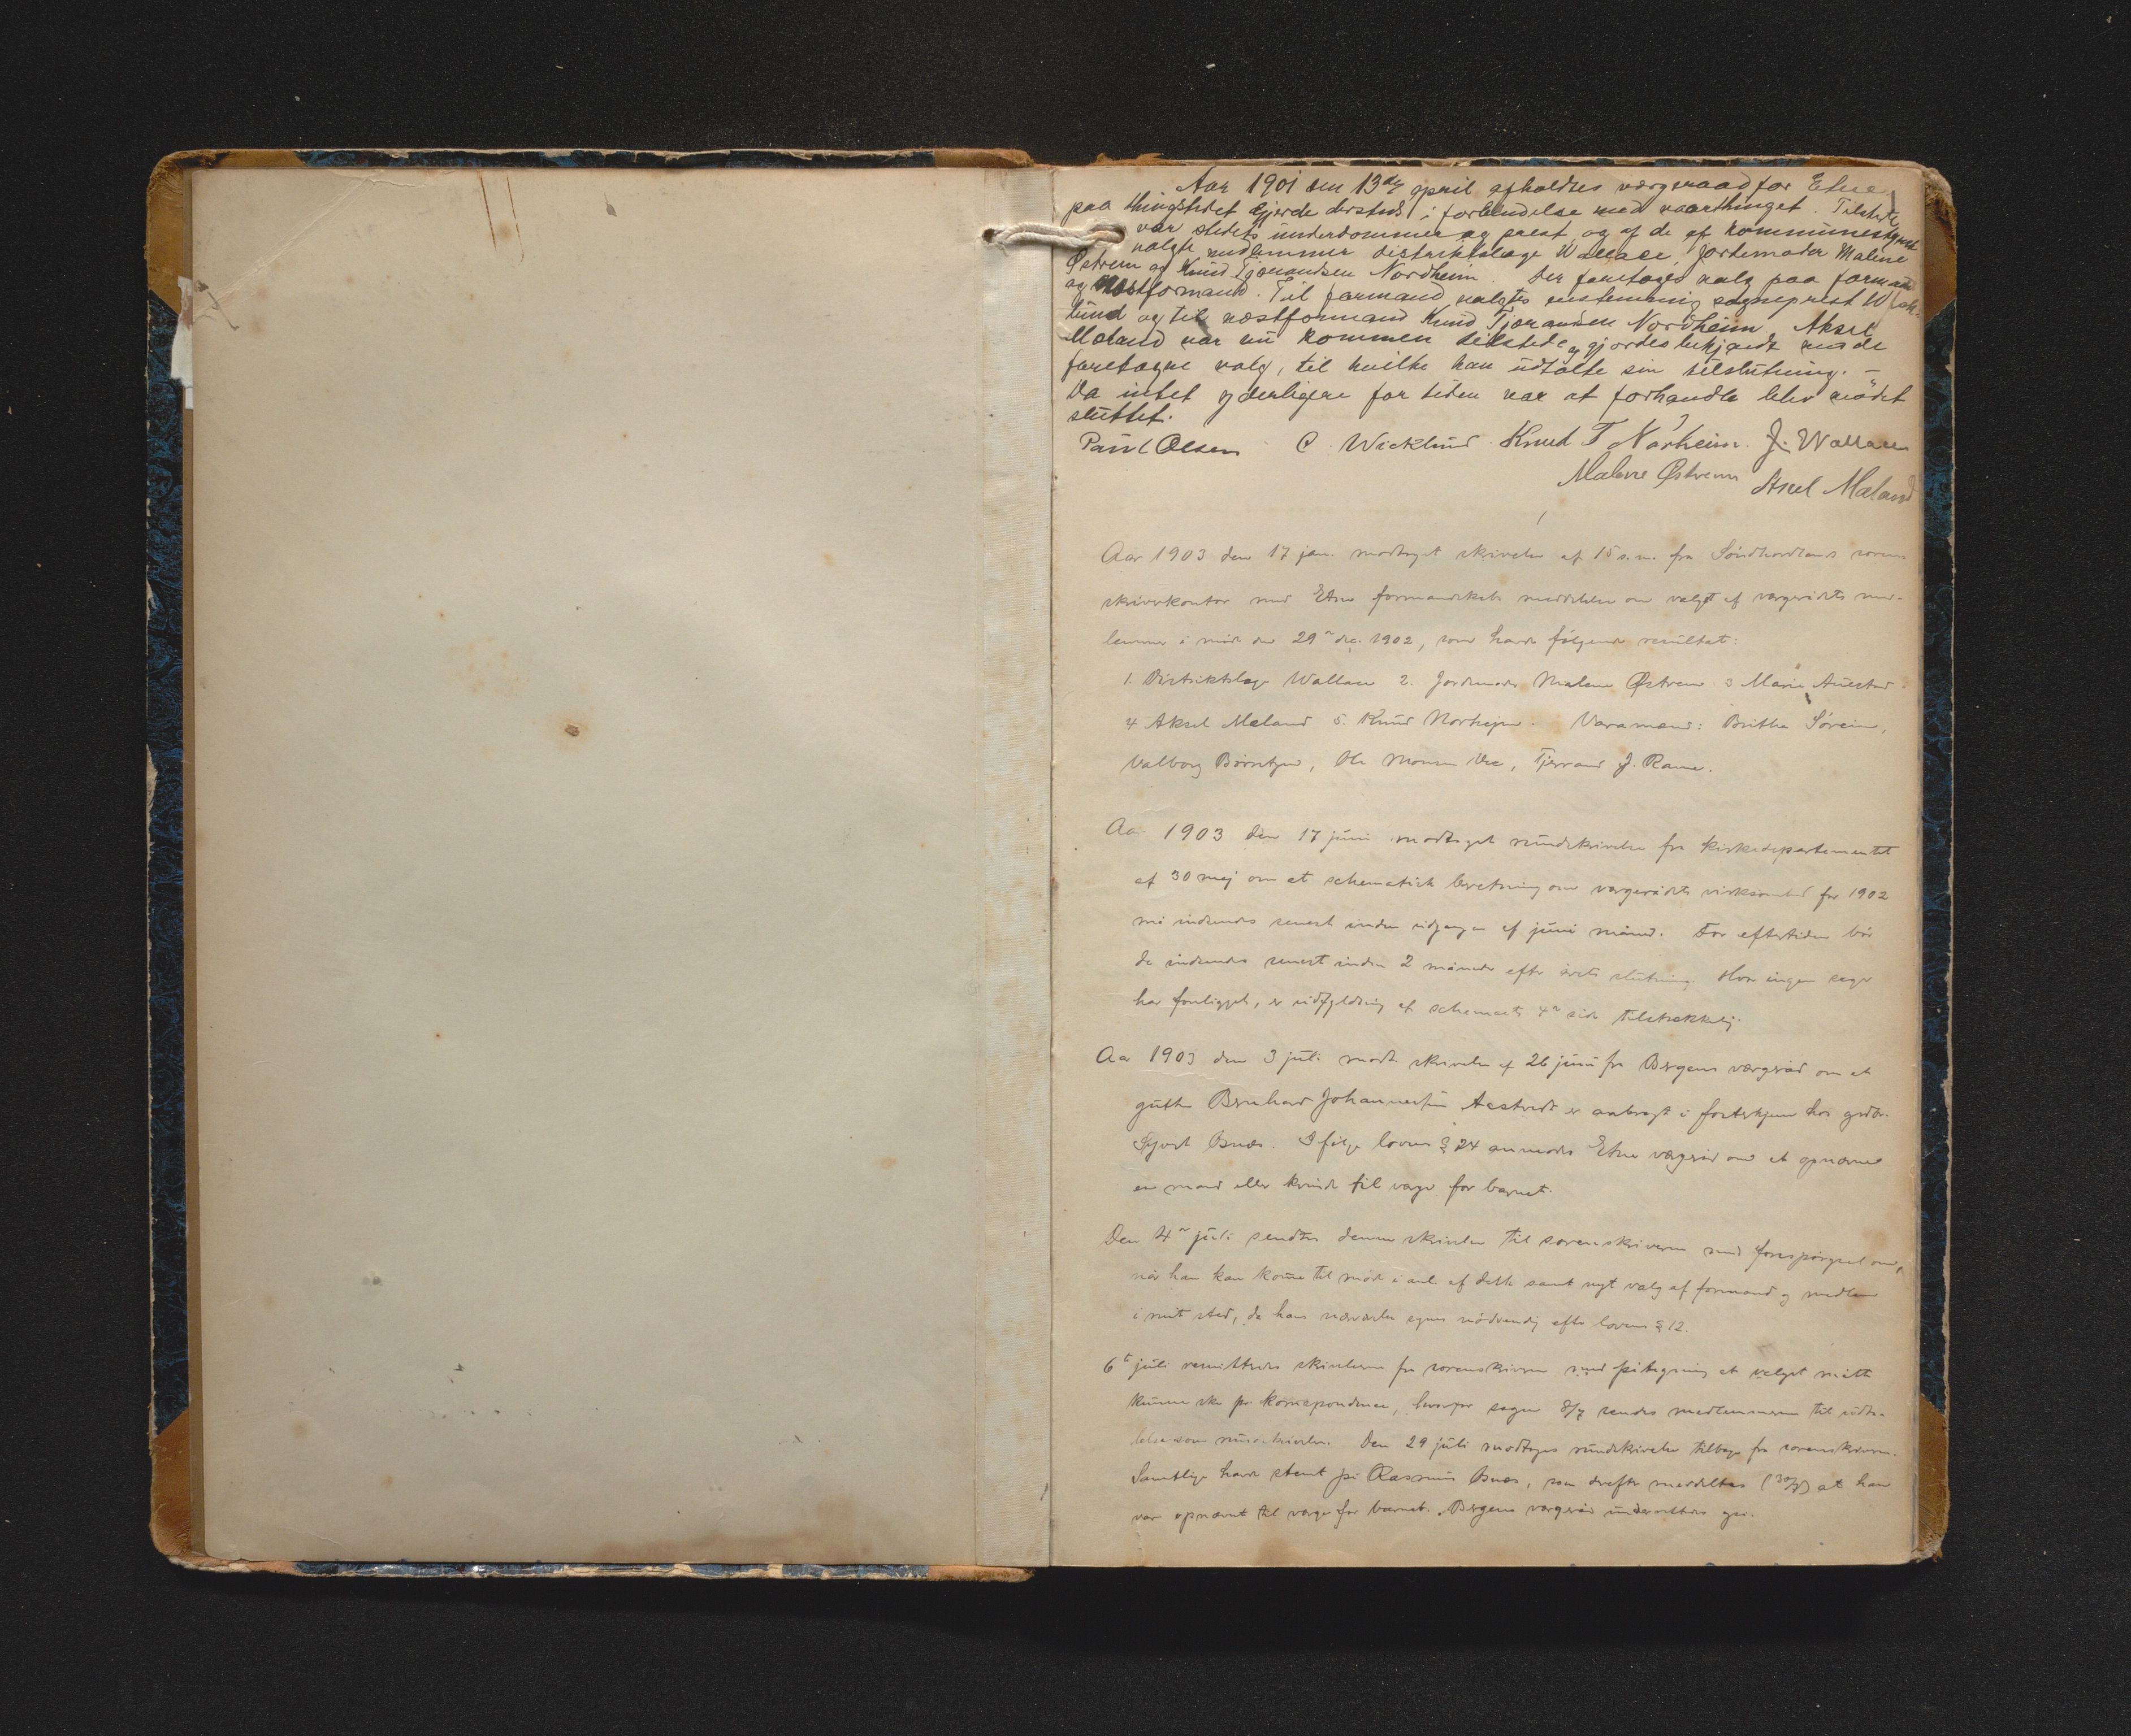 Aar 1901 den 13de april afholdtes værgeraad for Etne
paa thingstedet Gjerde dersteds i forbindelse med vaarthinget. Tilstede
var stedets underdommer og prest og af de af kommunestyret
valgte medlemmer distriktslæge Wallace, Jordemoder Malene
Østrem og Knud Tjærandsen Nordheim. Der foretoges valg paa formand
og næstformand. Til formand valgtes enstemmig sogneprest Wick-
lund og til næstformand Knud Tjærandsen Nordheim. Aksel
Mæland var nu kommen tilstede og gjordes bekjendt med de
foretagne valg, til hvilke han udtalte sin tilslutning. —
Da intet yderligere for tiden var at forhandle blev mødet
sluttet.
Paul Olsen C. Wicklund Knud T Norheim. J. Wallace
Malene Østrem Aksel Mæland
Aar 1903 den 17 jan. modtaget skrivelse af 15 s.m. fra Søndhordlands soren-
skriverkontor med Etne formandskabs meddelelse om valget af værgerådets med-
lemmer i møde den 29de dec. 1902, som havde følgende resultat:
1. Distriktslæge Wallace 2. Jordemoder Malene Østrem 3 Marie
4 Aksel Mæland 5. Knud Norheim. Varamænd: Britha Sørein,
Valborg Børretzen, Ole Monsen Vee, Tjerrand J. Rame.
Aar 1903 den 17 juni modtaget rundskrivelse fra kirkedepartementet
af 30 maj om at schematisk beretning om værgerådets virksomhed for 1902
må indsendes senest inden udgangen af juni måned. For eftertiden bør
de indsendes senest inden 2 måneder efter årets slutning. Hvor ingen sager
har foreligget, er udfyldning af schemaets 4de side tilstrækkelig.
Aar 1903 den 3 juli modt. skrivelse af 26 juni fra Bergens værgeråd om at
gutten Bernhard Johannessen Aastvedt er anbragt i fosterhjem hos grdbr.
Sjovat Osnes. Ifølge lovens § 24 anmodes Etne værgeråd om at opnævne
en mand eller kvinde til værge for barnet.
Den 4de juli sendtes denne skrivelse til sorenskriveren med forespørgsel om,
når han kan komme til møde i anl. af dette samt nyt valg af formand og medlem
i mit sted, da hans nærværelse synes nødvendig efter lovens § 12.
6te juli remitteredes skrivelsen fra sorenskriveren med påtegning at valget måtte
kunne ske pr. korrespondence, hvorfor sagen 8/7 sendes medlemmerne til udta-
lelse som rundskrivelse. Den 29 juli modtages rundskrivelse tilbage fra sorenskriveren.
Samtlige havde stemt på Rasmus Osnes, som derefter meddeltes (30/7) at han
var opnævnt til værge for barnet. Bergens værgeråd underrettedes